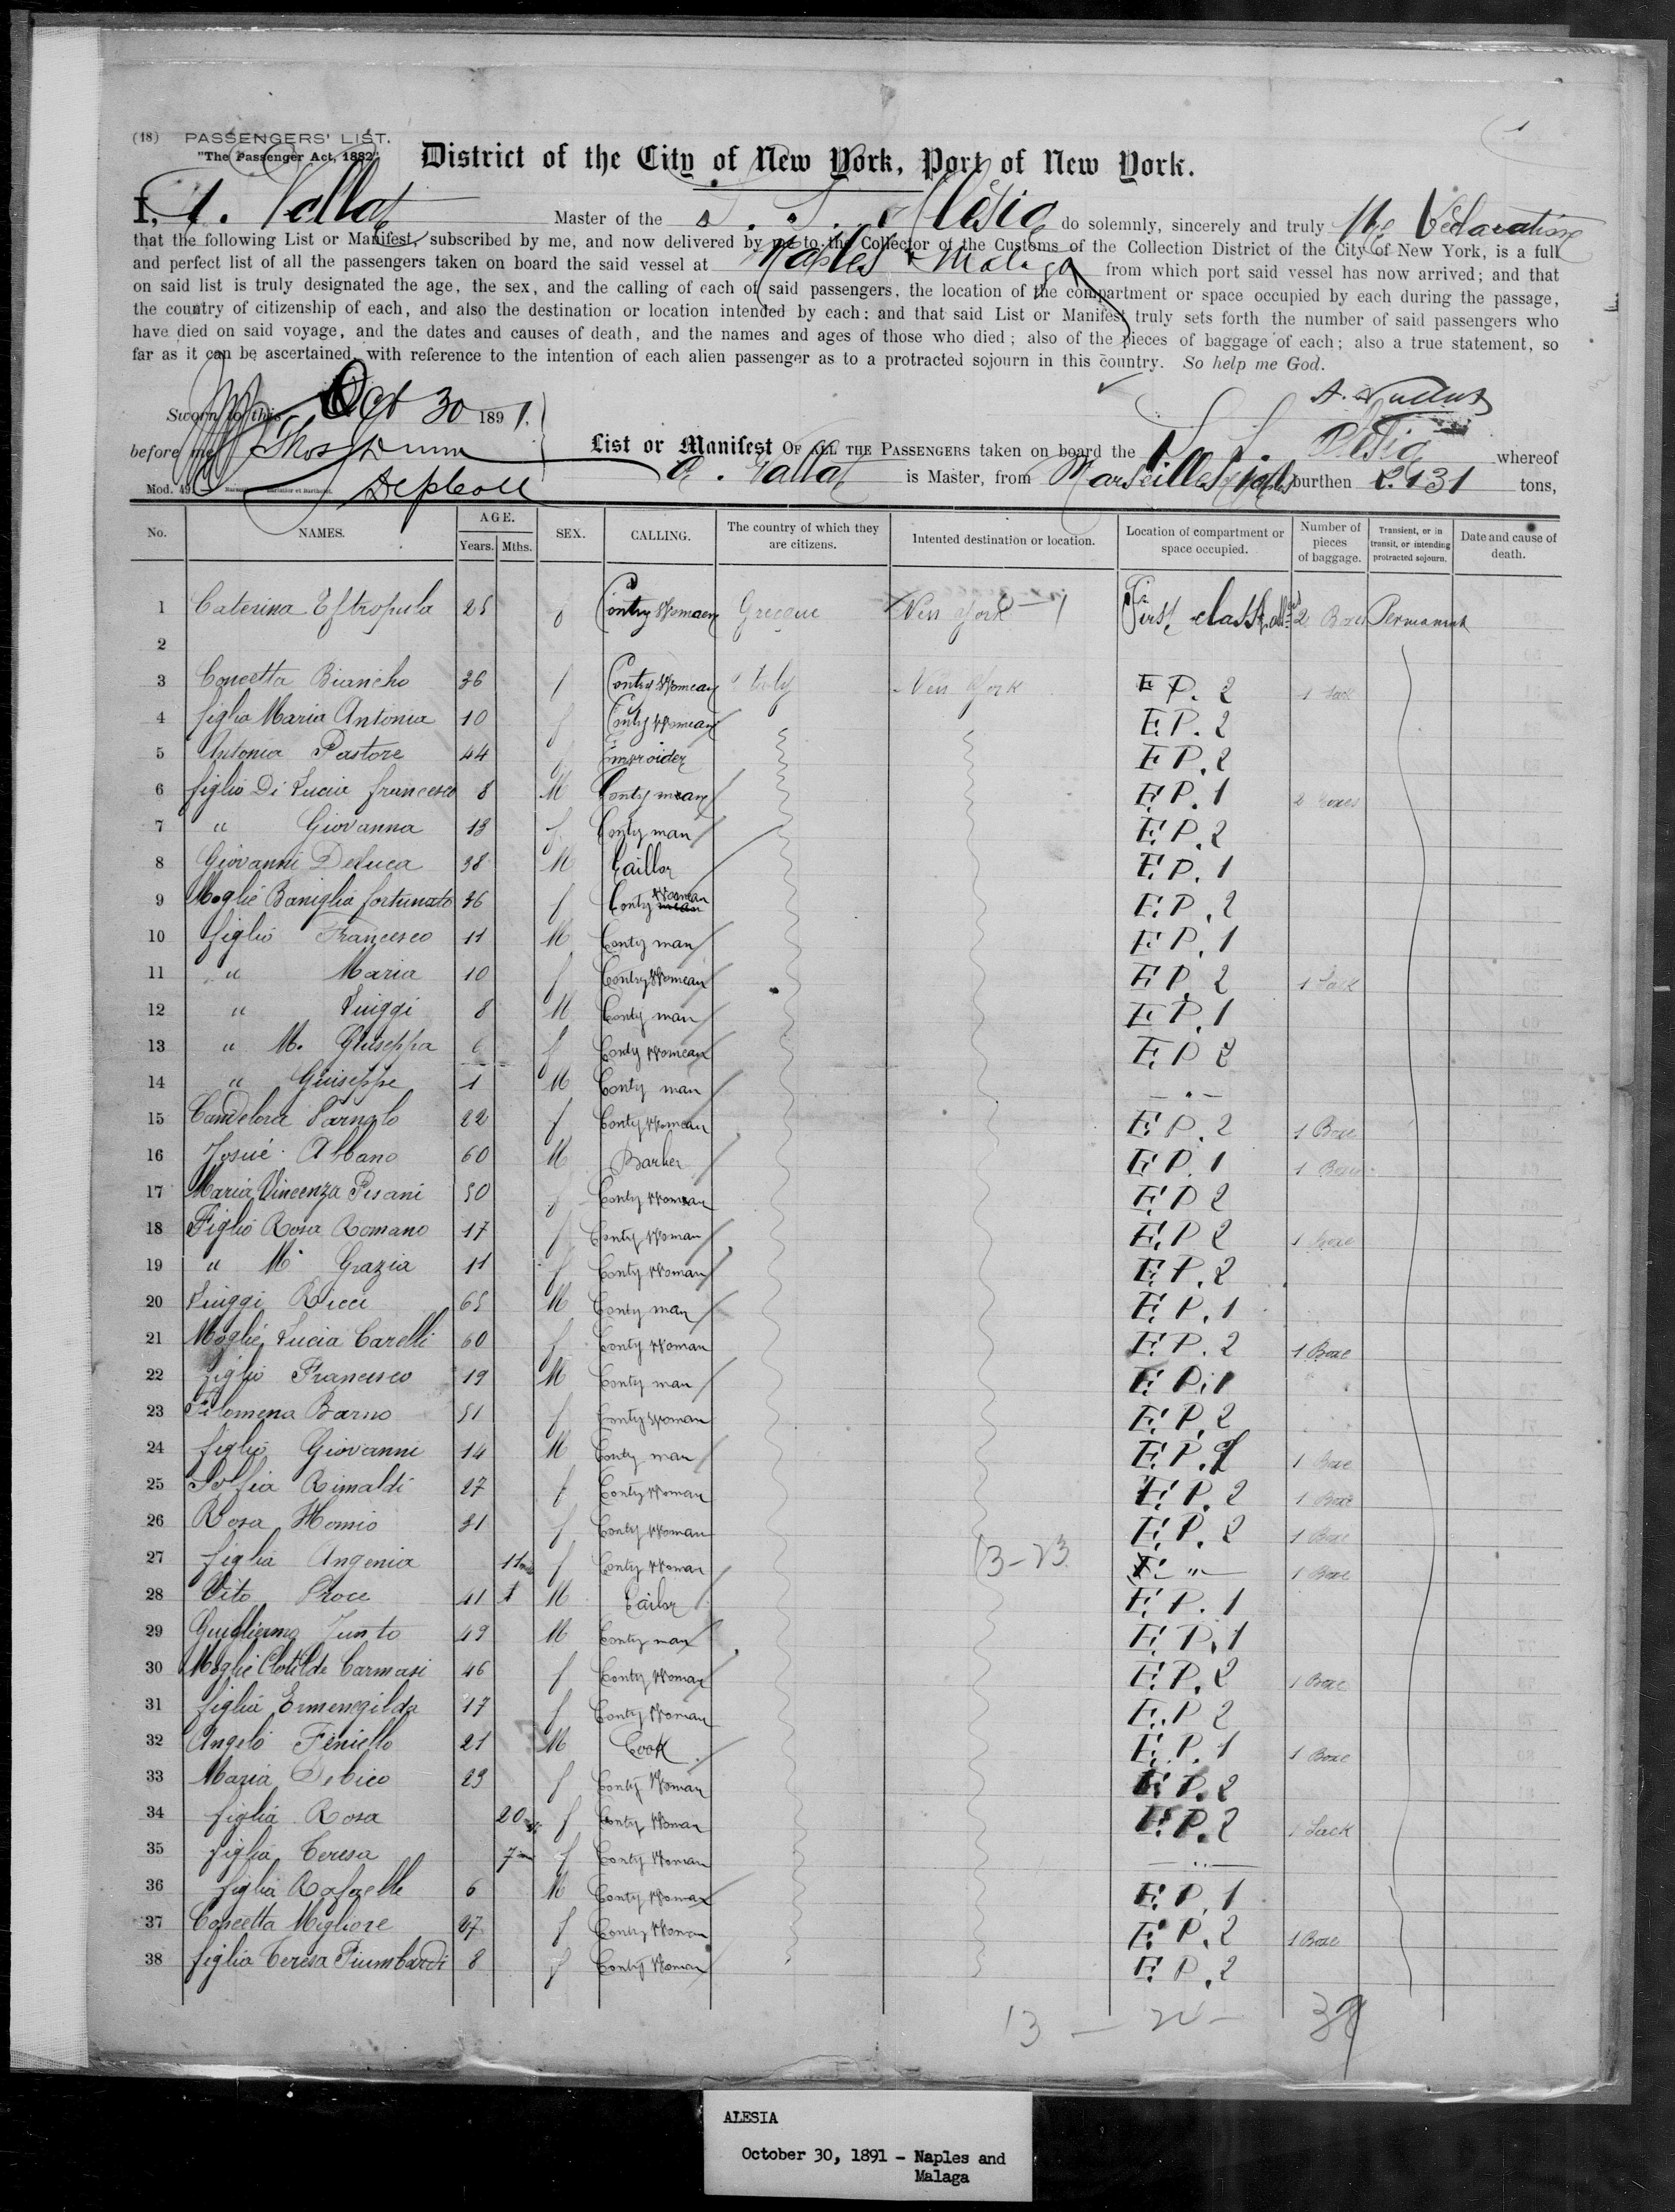 (18) PASSENGERS' LIST.
"The Passenger Act, 1882"
District of the City of New York, Port of New York.
I, A. Vallat Master of the S. S. Alésia do solemnly, sincerely and truly
that the following List or Manifest, subscribed by me, and now delivered by me to the Collector of the Customs of the Collection District of the City of New York, is a full
and perfect list of all the passengers taken on board the said vessel at Naples & Malaga from which port said vessel has now arrived; and that
on said list is truly designated the age, the sex, and the calling of each of said passengers, the location of the compartment or space occupied by each during the passage,
the country of citizenship of each, and also the destination or location intended by each: and that said List or Manifest truly sets forth the number of said passengers who
have died on said voyage, and the dates and causes of death, and the names and ages of those who died; also of the pieces of baggage of each; also a true statement, so
far as it can be ascertained, with reference to the intention of each alien passenger as to a protracted sojourn in this country. So help me God.
Sworn to this Oct 30 1891.
before me Thos Dunn
List or Manifest OF ALL THE PASSENGERS taken on board the S. S. Alésia whereof
A. Vallat is Master, from Marseilles burthen 2.131 tons,
Mod. 49
No. NAMES. AGE. Years. Mths. SEX. CALLING. The country of which they are citizens. Intented destination or location. Location of compartment or space occupied. Number of pieces of baggage. Transient, or in transit, or intending protracted sojourn. Date and cause of death.
1 Caterina Eftropula 25 Contry Womean Grecque New York First class 2 Boxes Permanent
2
3 Concetta Biancho 36 f Contry Womean Italy New York E P. 2 1 Sack
4 figlia Maria Antonia 10 f Conty Womean E P. 2
5 Antonia Pastore 44 f Embroider E P. 2
6 figlio Di Lucia francesco 8 M Conty mean E P. 1 2 Boxes
7 " Giovanna 13 f Conty man E P. 2
8 Giovanni Deluca 38 M Taillor E P. 1
9 Moglie Baniglia fortunato 36 f Conty Woman E P. 2
10 figlio Francesco 11 M Conty man E P. 1
11 " Maria 10 f Contry Womean E P. 2 1 Sack
12 " Luiggi 8 M Conty man E P. 1
13 " M. Giuseppa 6 f Conty Womean E P 2
14 " Guiseppe 1 M Conty man
15 Candelora 22 f Conty Womean E P. 2 1 Boxe
16 Josué Abbano 60 M Barber E P. 1 1 Boxe
17 Maria Vincenza Pisani 50 f Conty Woman E P 2
18 Figlio Rosa Romano 17 f Conty Woman E P 2 1 Boxe
19 " Mª Grazia 11 f Conty Woman E P. 2
20 Luiggi Ricci 65 M Conty man E P. 1
21 Moglie Lucia Carelli 60 f Conty Woman E P. 2 1 Boxe
22 figlio Francesco 19 M Conty man E P. 1
23 Filomena Barno 51 f Conty Woman E P. 2
24 figlio Giovanni 14 M Conty man E P. 1 Boxe
25 Sofia Rimaldi 27 f Conty Woman E P. 2 1 Boxe
26 Rosa Homio 31 f Conty Woman E P. 2 1 Boxe
27 figlia Angenia 11 f Conty Woman 13-23 " 1 Boxe
28 Vito Proce 41 M Tailor E P. 1
29 Guiglierma Junto 49 M Conty man E P. 1
30 Moglie Clotilde Carmasi 46 f Conty Woman E P. 2 1 Boxe
31 figlia Ermenegilda 17 f Conty Woman E P 2
32 Angelo Feniello 21 M Cook E P. 1 1 Boxe
33 Maria Debico 29 f Conty Woman E P. 2
34 figlia Rosa 20 f Conty Woman E P. 2 1 Sack
35 figlia Teresa 7 f Conty Woman
36 figlia Rafaelle 6 M Conty Woman E P. 1
37 Concetta Migliore 27 f Conty Woman E P. 2 1 Boxe
38 figlia Teresa Piumbardi 8 f Conty Woman E P. 2
13 — 38
ALESIA
October 30, 1891 - Naples and
Malaga